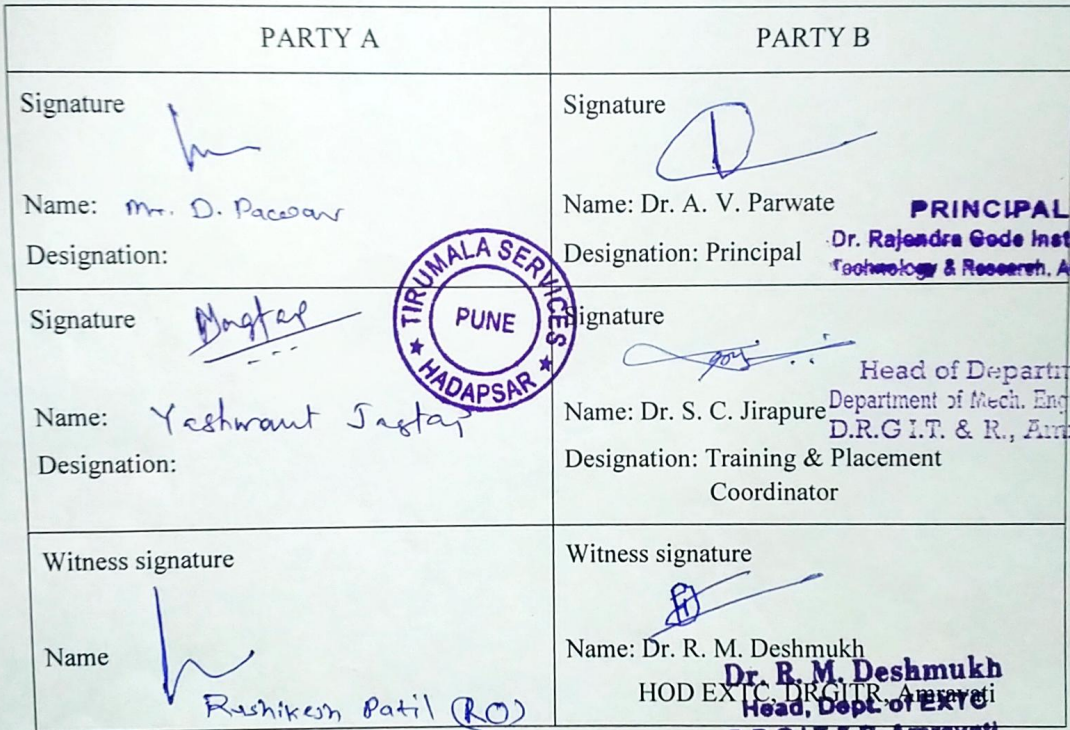 PARTY A
PARTY B
Signature
Name: Mr. D.
Designation:
Signature
Name: Dr. A. V. Parwate
Designation: Principal
PRINCIPAL
Dr. Rajendra Gode Inst
Technology & Research, A
TIRUMALA SERVICES
PUNE
★ HADAPSAR ★
Signature
Name: Yashwant Jagtap
Designation:
Signature
Name: Dr. S. C. Jirapure
Designation: Training & Placement
Coordinator
Head of Departm
Department of Mech. Eng
D.R.G I.T. & R., Am
Witness signature
Name
Rushikesh Patil (RO)
Witness signature
Name: Dr. R. M. Deshmukh
HOD EXTC, DRGITR, Amravati
Dr. R. M. Deshmukh
Head, Dept. of EXTC